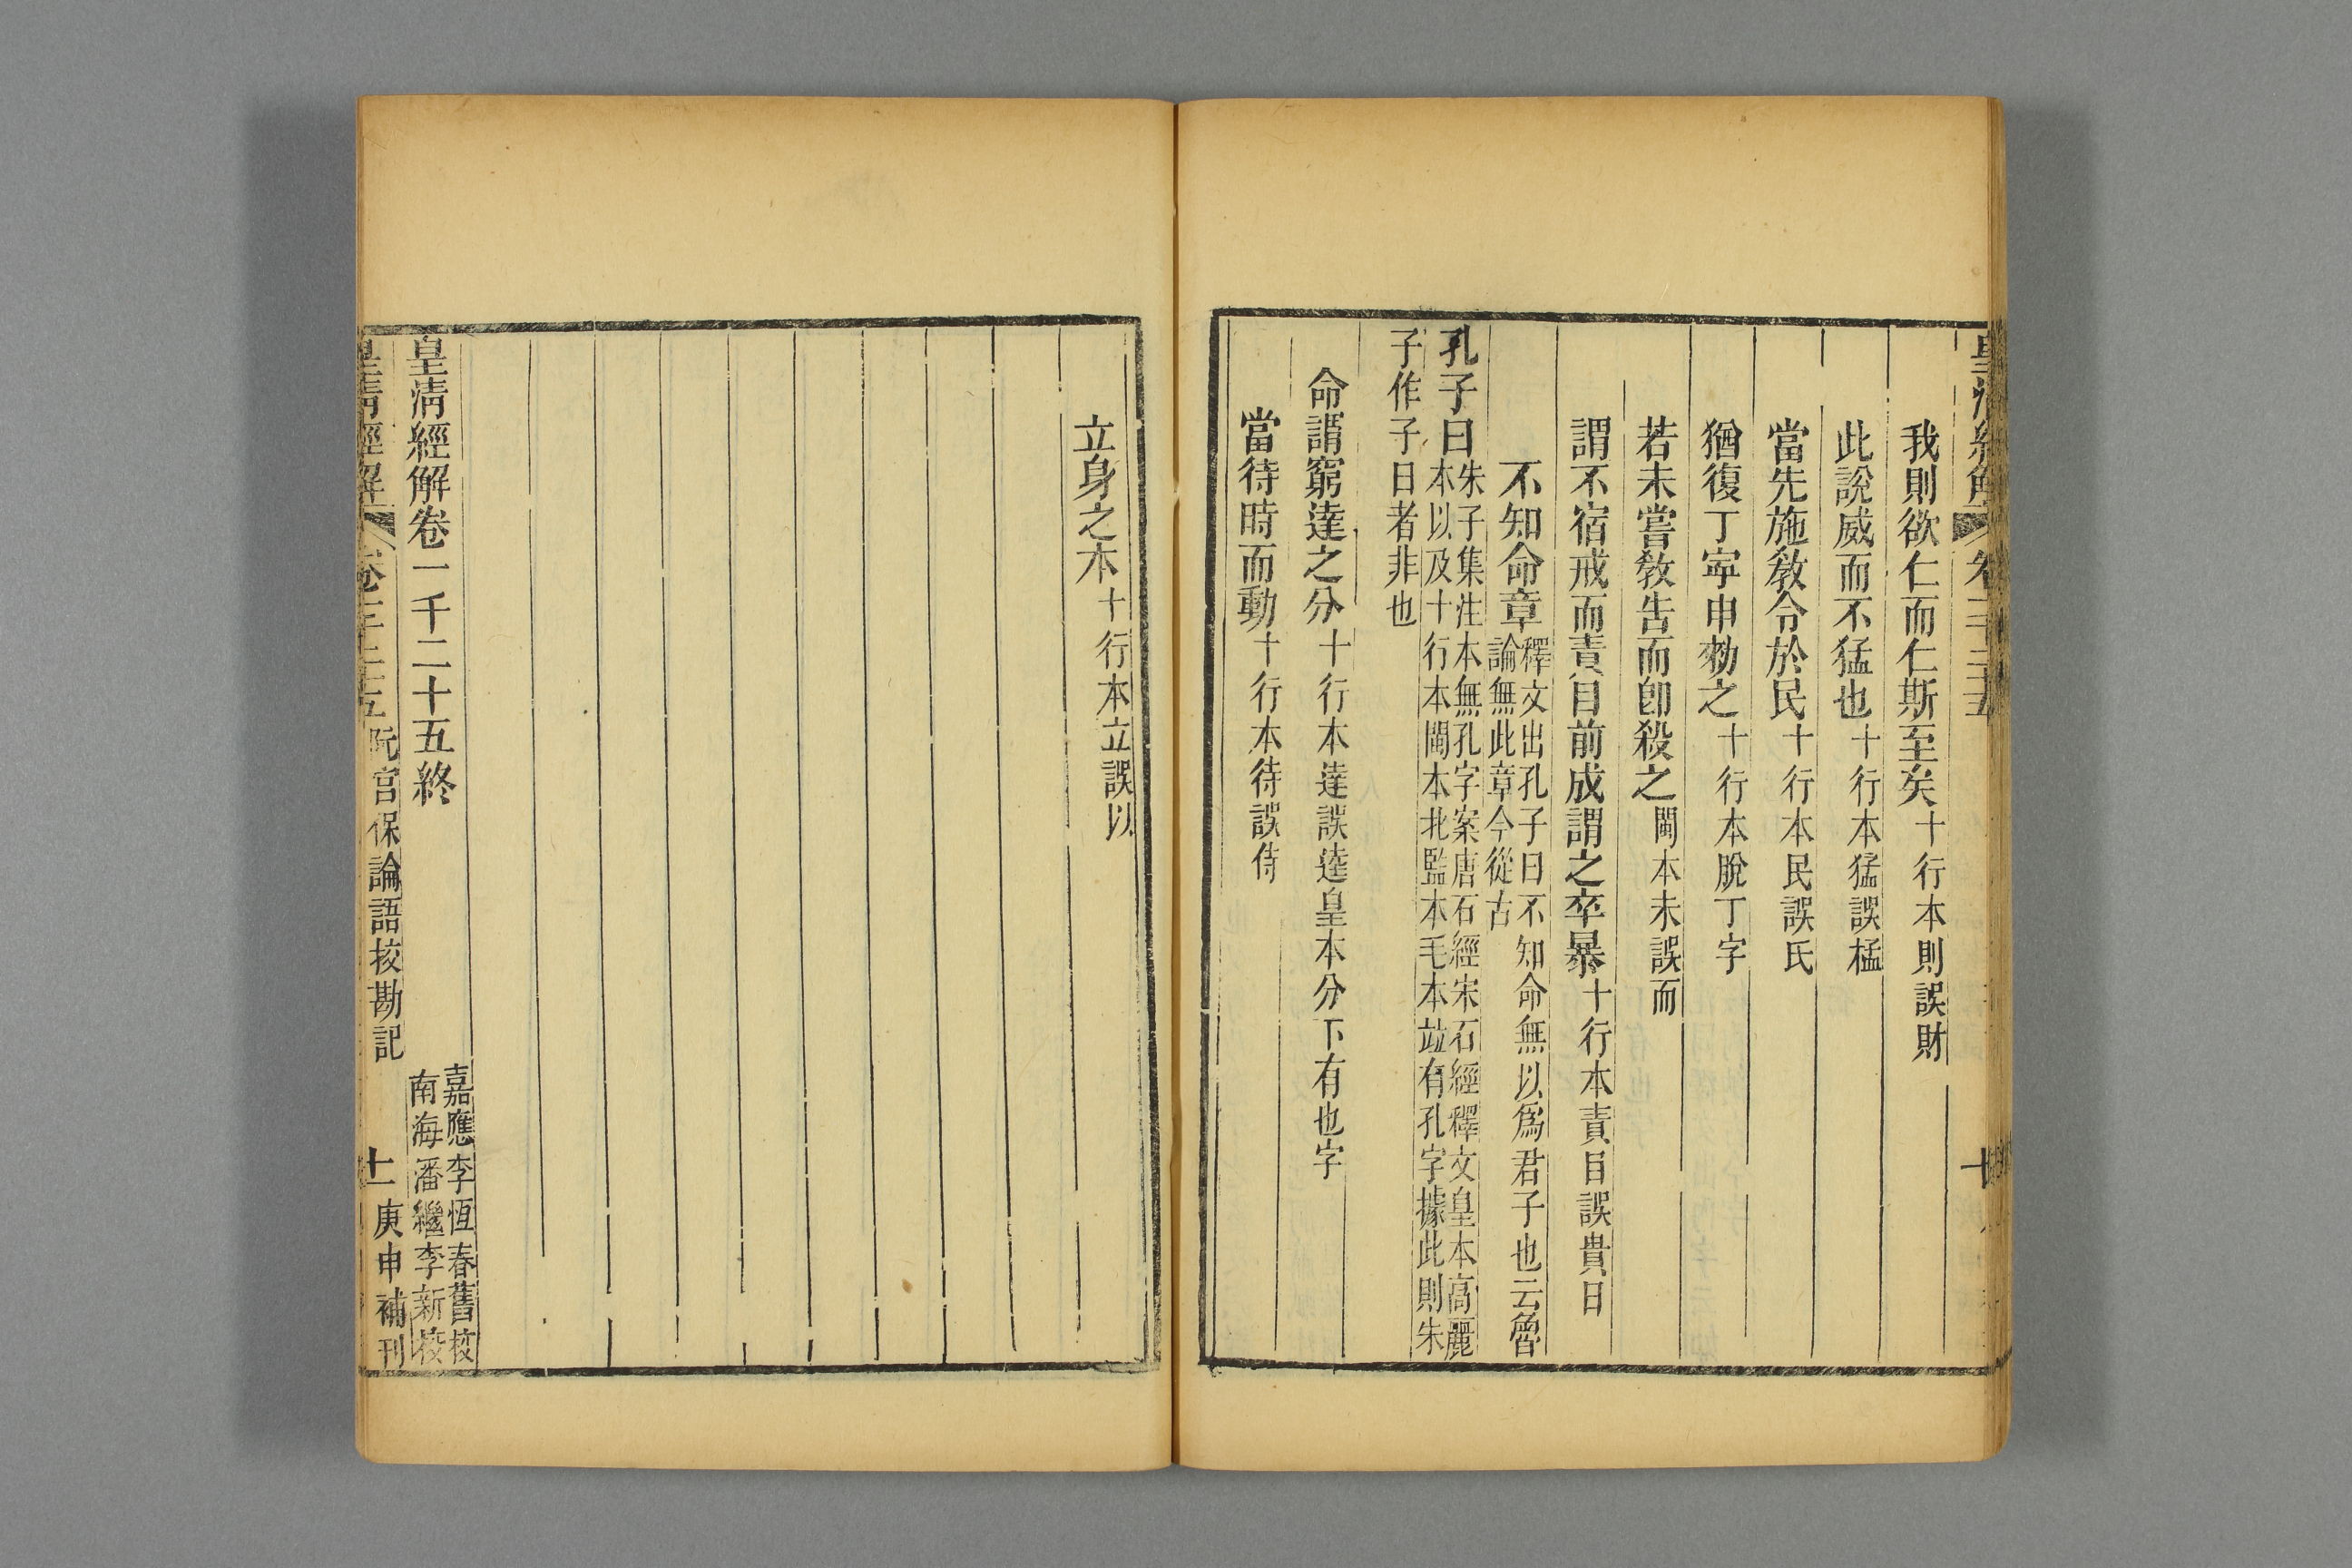 皇清經解 卷一千二十五 十
我則欲仁而仁斯至矣十行本則誤財
此說威而不猛也十行本猛誤榓
當先施敎令於民十行本民誤氏
猶復丁寧申勑之十行本脫丁字
若未嘗敎告而卽殺之閩本未誤而
謂不宿戒而責目前成謂之卒暴十行本責目誤貴日
不知命章釋文出孔子曰不知命無以爲君子也云魯
論無此章今從古
孔子曰朱子集注本無孔字案唐石經宋石經釋文皇本高麗
本以及十行本閩本北監本毛本竝有孔字據此則朱
子作子曰者非也
命謂窮達之分十行本達誤逹皇本分下有也字
當待時而動十行本待誤侍
立身之本十行本立誤以
皇清經解卷一千二十五終
嘉應李恆春舊校
南海潘繼李新校
皇清經解 卷一千二十五 阮宮保論語挍勘記 十一 庚申補刊